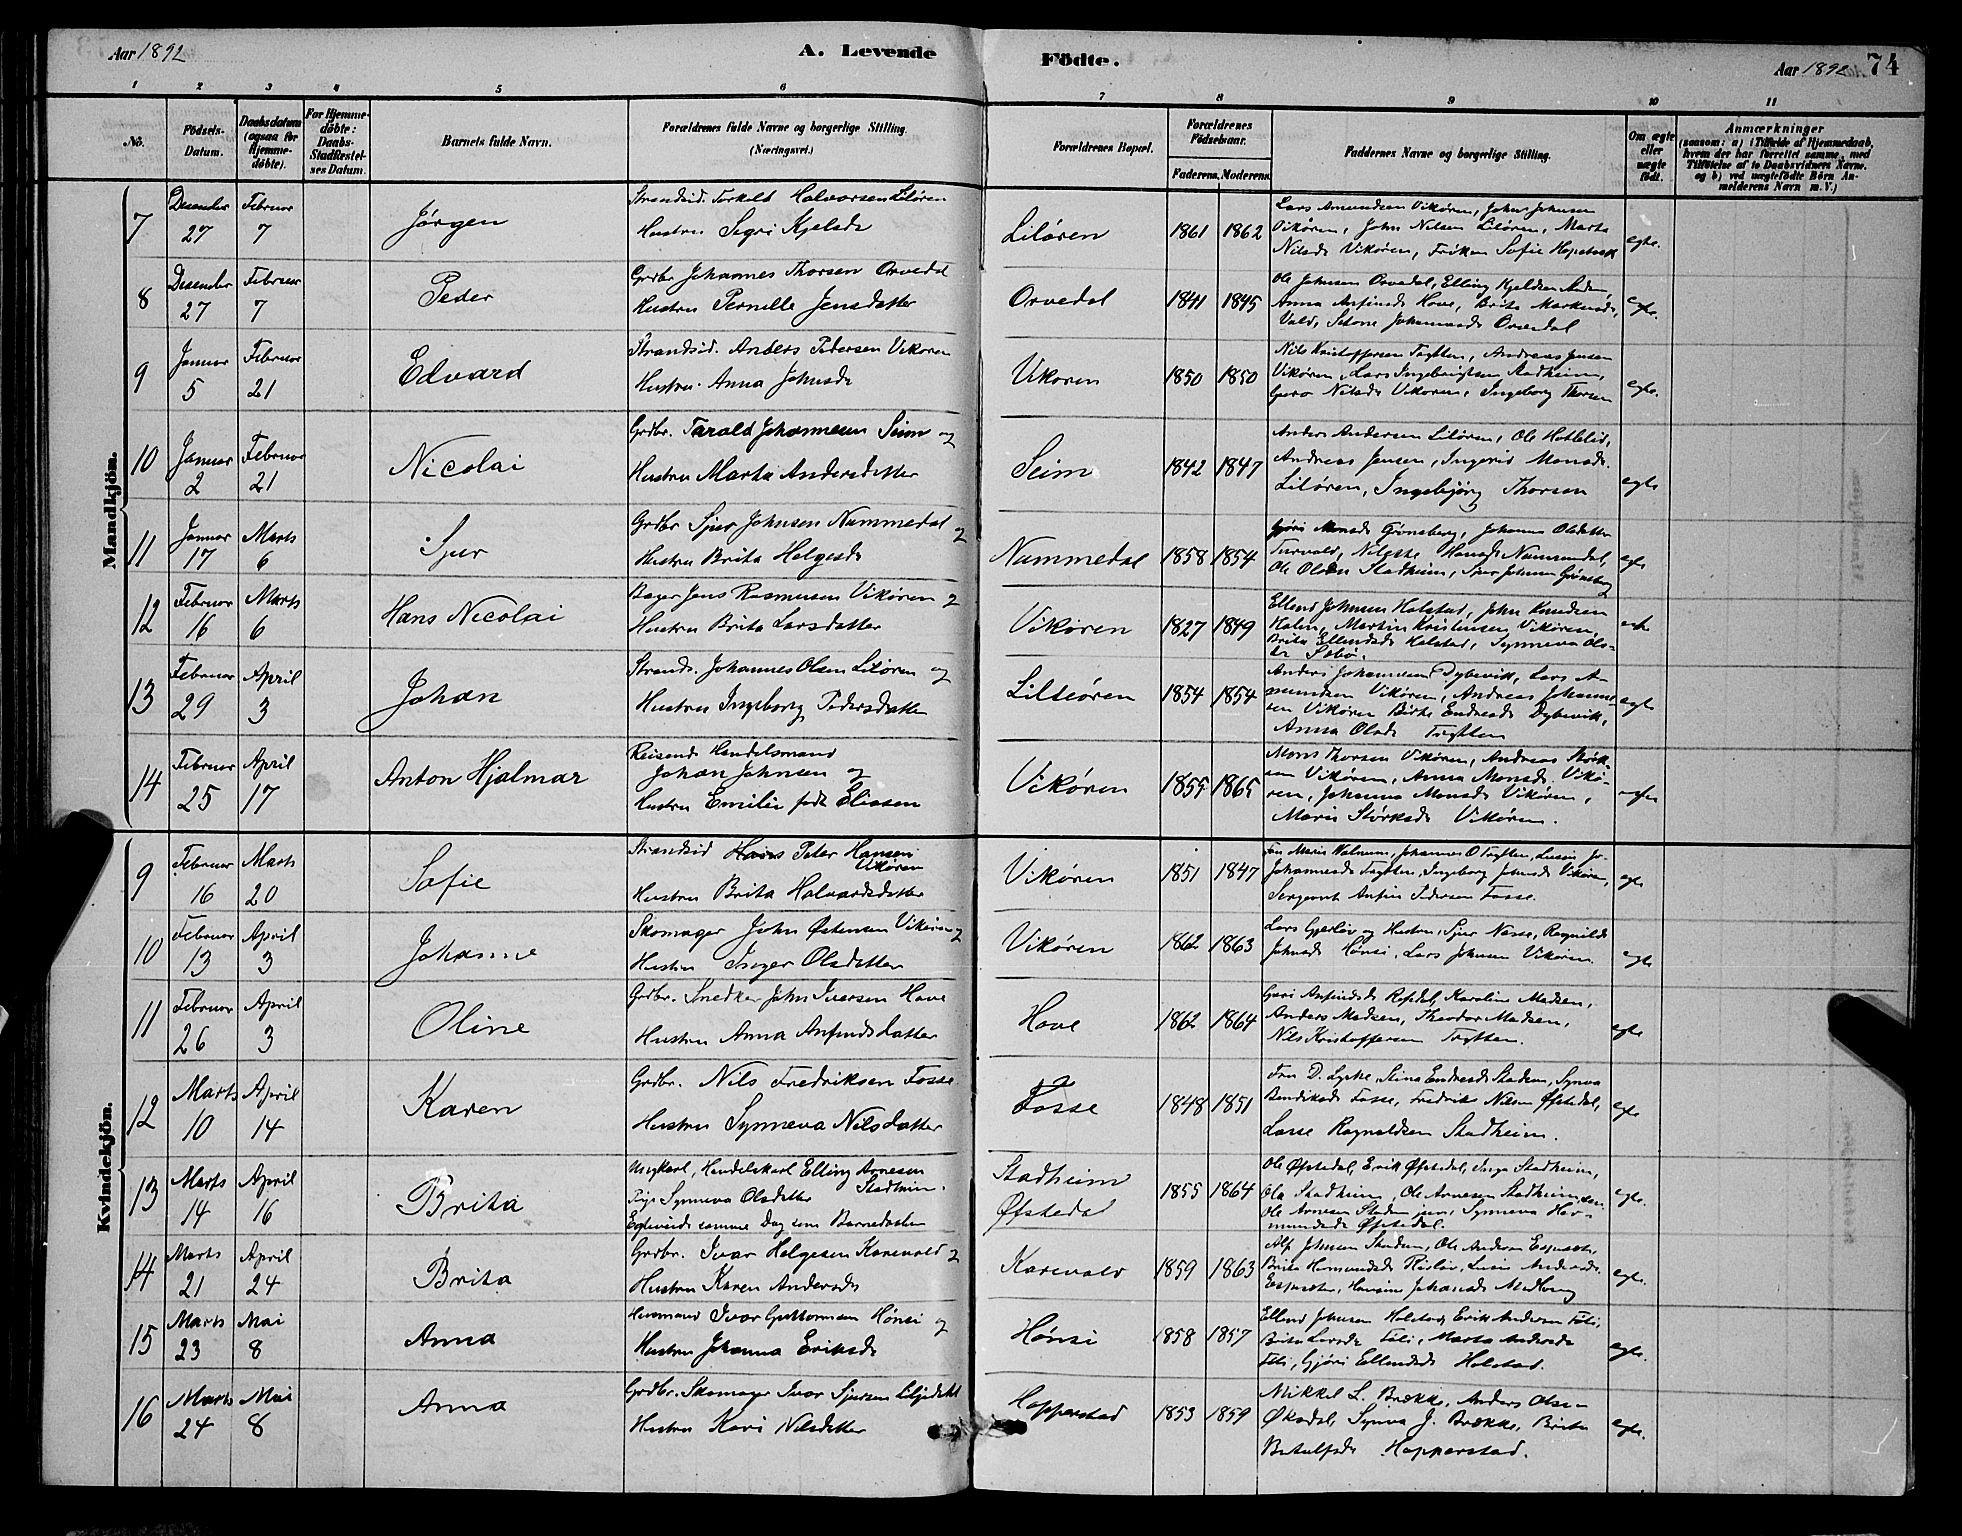 Aar 1892
A. Levende
Födte.
Aar 1892
74
1 2 3 4 5 6 7 8 9 10 11
No.
Födsels-
Datum.
Daabsdatum
(ogsaa for
Hjemme-
döbte).
For Hjemme-
döbte:
Daabs-
Stadfæstel-
ses Datum.
Barnets fulde Navn.
Forældrenes fulde Navne og borgerlige Stilling.
(Næringsvei.)
Forældrenes Bopæl.
Forældrenes
Födselsaar.
Faderens. Moderens.
Faddernes Navne og borgerlige Stilling.
Om ægte
eller
uægte
födt.
Anmærkninger
(saasom: a) i Tilfælde af Hjemmedaab,
hvem der har forrettet samme, med
Tilföielse af to Daabsvidners Navne,
og b) ved uægtefödte Börn An-
melderens Navn m. V.)
Mandkjön.
7
Desember 27
Februar 7
Jørgen
Strandsid. Torkeld Halvorsen Liløren
Hustru Sigri Kjelsds
Liløren
1861 1862
Lars Amundsen Vikøren, John Johnsen
Vikøren, John Nilsen Liløren, Marta
Nilsds Vikøren, Frøken Sofie Hopstock
egte.
8
Desember 27
Februar 7
Peder
Grdbr Johannes Thorsen Orvedal
Hustru Pernille Jensdatter
Orvedal
1841 1845
Ole Johnsen Orvedal, Elling Kjeldsen
Anna Anfinsds Hove, Brita
Johannesds Orvedal
egte.
9
Januar 5
Februar 21
Edvard
Strandsid. Anders Pedersen Vikøren
Hustru Anna Johnsds
Vikøren
1850 1850
Nils Kristoffersen Trytten, Andreas Jensen
Vikøren, Lars Ingebrigtsen Stadheim,
Nilsds Vikøren, Ingeborg Thorsen
egte.
10
Januar 2
Februar 21
Nicolai
Grdbr. Tarald Johannesen Seim og
Hustru Marta Andersdatter
Seim
1842 1847
Anders Andersen Liløren, Ole
Andreas Jensen, Ingerid Monsds.
Liløren, Ingebjørg Thorsen
egte
11
Januar 17
Marts 6
Sjur
Grdbr Sjur Johnsen Nummedal og
Hustru Brita Helgesds
Nummedal
1858 1854
Gjøri Monsds Grønsberg, Johanna Olsdatter
Turvold, Nummedal,
Ole Olsen Stadheim, Sjur Johnsen Grønsberg
egte
12
Februar 16
Marts 6
Hans Nicolai
Bager Jens Rasmusen Vikøren og
Hustru Brita Larsdatter
Vikøren
1827 1849
Ellend Johnsen Holstad, John Knudsen
Martin Kristensen Vikøren,
Brita Ellendsds Holstad, Synneva Ols-
dr
13
Februar 29
April 3
Johan
Strands. Johannes Olsen Liløren og
Hustru Ingeborg Pedersdatter
Lilleören
1854 1854
Anders Johannesen Dybevik, Lars A-
mundsen Vikøren, Andreas Johanne-
sen Vikøren Endresds Dybevik,
Anna Olsds Trytten
egte
14
Februar 25
April 17
Anton Hjalmar
Reisende Handelsmand
Johan Johnsen og
Hustru Emilie født Eliasen
Vikøren
1855 1865
Mons Thorsen Vikøren, Andreas Størk-
sen Vikøren, Anna Monsds. Vikø-
ren, Johanna Monsds Vikøren,
Marie Størksds Vikøren.
Kvindekjön.
9
Februar 16
Marts 20
Sofie
Strandsid Hans Peter Hansen
Vikøren
Hustru Brita Halvardsdatter
Vikøren
1851 1847
Johannesds Trytten, Ingeborg Johnsds Vikøren,
Sergeant Anfin Pedersen Fosse.
egte
10
Februar 13
April 3
Johanne
Skomager John Østensen Vikøren og
Hustru Inger Olsdatter
Vikøren
1862 1863
Lars og Hustru, Sjur Nesse, Ragnilds
Johnsds Hønsi, Lars Johnsen Vikøren.
egte
11
Februar 26
April 3
Oline
Grdbr. Snedker John Iversen Hove
Hustru Anna Anfindsdatter
Hove
1862 1864
Anfindsds Refsdal, Karoline Madsen,
Anders Madsen, Theodor Madsen,
Nils Kristoffersen Tryttten.
egte
12
Marts 10
April 14
Karen
Grdbr. Nils Fredriksen Fosse
Hustru Synneva Nilsdatter
Fosse
1848 1851
Fru D. Lyche, Stina Endresds Stadem, Synva
Bendiksds Fosse, Fredrik Nilsen Øfstedal,
Lasse Ragnaldsen Stadheim.
egte
13
Marts 14
April 16
Brita
Ungkarl, Handelskarl Elling Arnesen
Pige Synneva Olsdatter Stadheim.
Egteviede samme Dag som Barnedaaben
Stadheim
Øfstedal
1855 1864
Ole Øfstedal, Erik Øfstedal, Inga Stadheim,
Ola Stadheim, Ole Arnesen Stadheim sen.
Ole Arnesen Stadem jun, Synneva Her-
mundsds Øfstedal.
egte.
14
Marts 21
April 24
Brita
Grdbr. Ivar Helgesen Karevold og
Hustru Karen Andersds
Karevold
1859 1863
Alf Johnsen Stadem, Ole Andersen Espeseter,
Brita Hermundsds Risløv, Andersds.
Espeseter, Johansds
egte.
15
Marts 23
Mai 8
Anna
Husmand Ivar Guttormsen Hønsi og
Hustru Johanna Eriksds
Hønsi
1858 1857
Ellend Johnsen Holstad, Erik Andersen Føli,
Brita Larsds Føli, Marta Andersds
Føli, Gjøri Ellendsds Holstad.
egte.
16
Marts 24
Mai 8
Anna
Grdbr. Skomager Ivar Sjursen Liljedahl
Hustru Kari Nilsdatter
Hopperstad
1853 1859
Mikkel L. Brække, Anders Olsen
Øksdal, Synva J. Brække, Brita
Botulfsds Hopperstad.
egte.